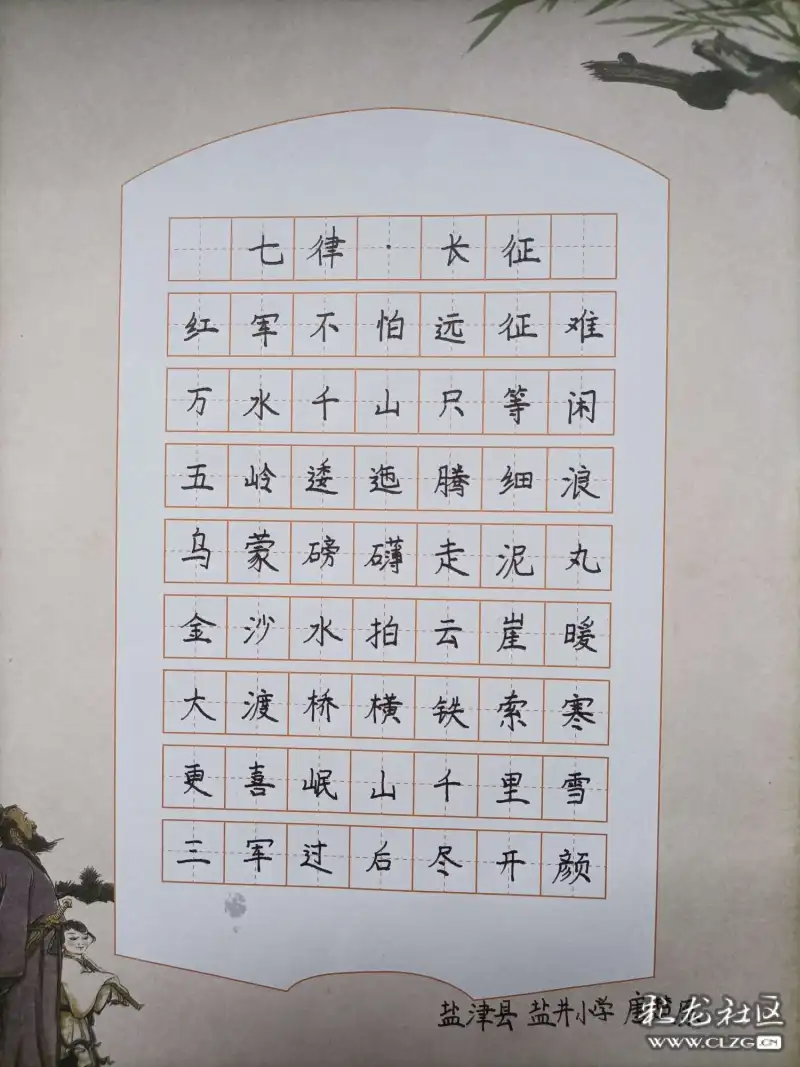 七律·长征
红军不怕远征难
万水千山只等闲
五岭逶迤腾细浪
乌蒙磅礴走泥丸
金沙水拍云崖暖
大渡桥横铁索寒
更喜岷山千里雪
三军过后尽开颜
盐津县 盐井小学 唐
龙社区
WWW.CLZG.CN